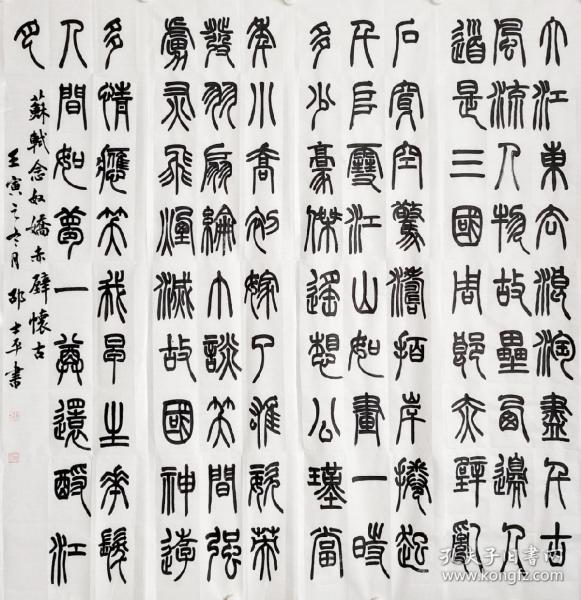 大江東去浪淘盡千古
風流人物故壘西邊人
道是三國周郎赤壁亂
石穿空驚濤拍岸捲起
千堆雪江山如畫一時
多少豪傑遙想公瑾當
年小喬初嫁了雄姿英
發羽扇綸巾談笑間強
虜灰飛煙滅故國神遊
多情應笑我早生華髮
人間如夢一尊還酹江
月
蘇軾念奴嬌赤壁懷古
壬寅之冬月邵士平書
孔夫子旧书网
www.kongfz.com